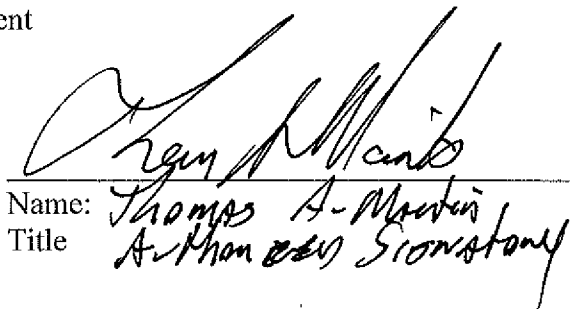 ent
Name: Thomas A. Martin
Title Authorized Signatory